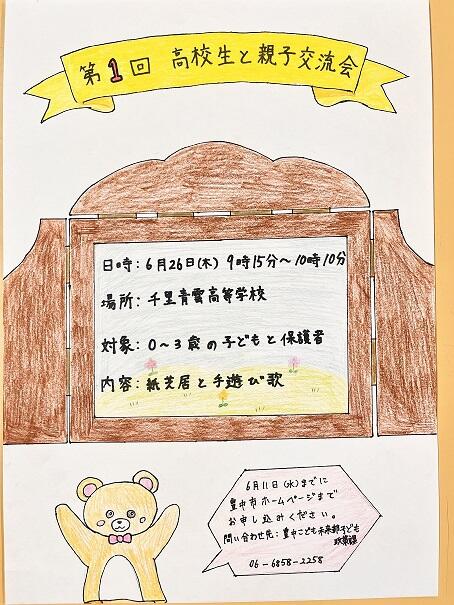 第1回 高校生と親子交流会
日時：6月26日(木) 9時15分～10時10分
場所：千里青雲高等学校
対象：0～3歳の子どもと保護者
内容：紙芝居と手遊び歌
6月11日(水)までに
豊中市ホームページまで
お申し込みください。
問い合わせ先：豊中こども未来部子ども
政策課
06-6858-2258